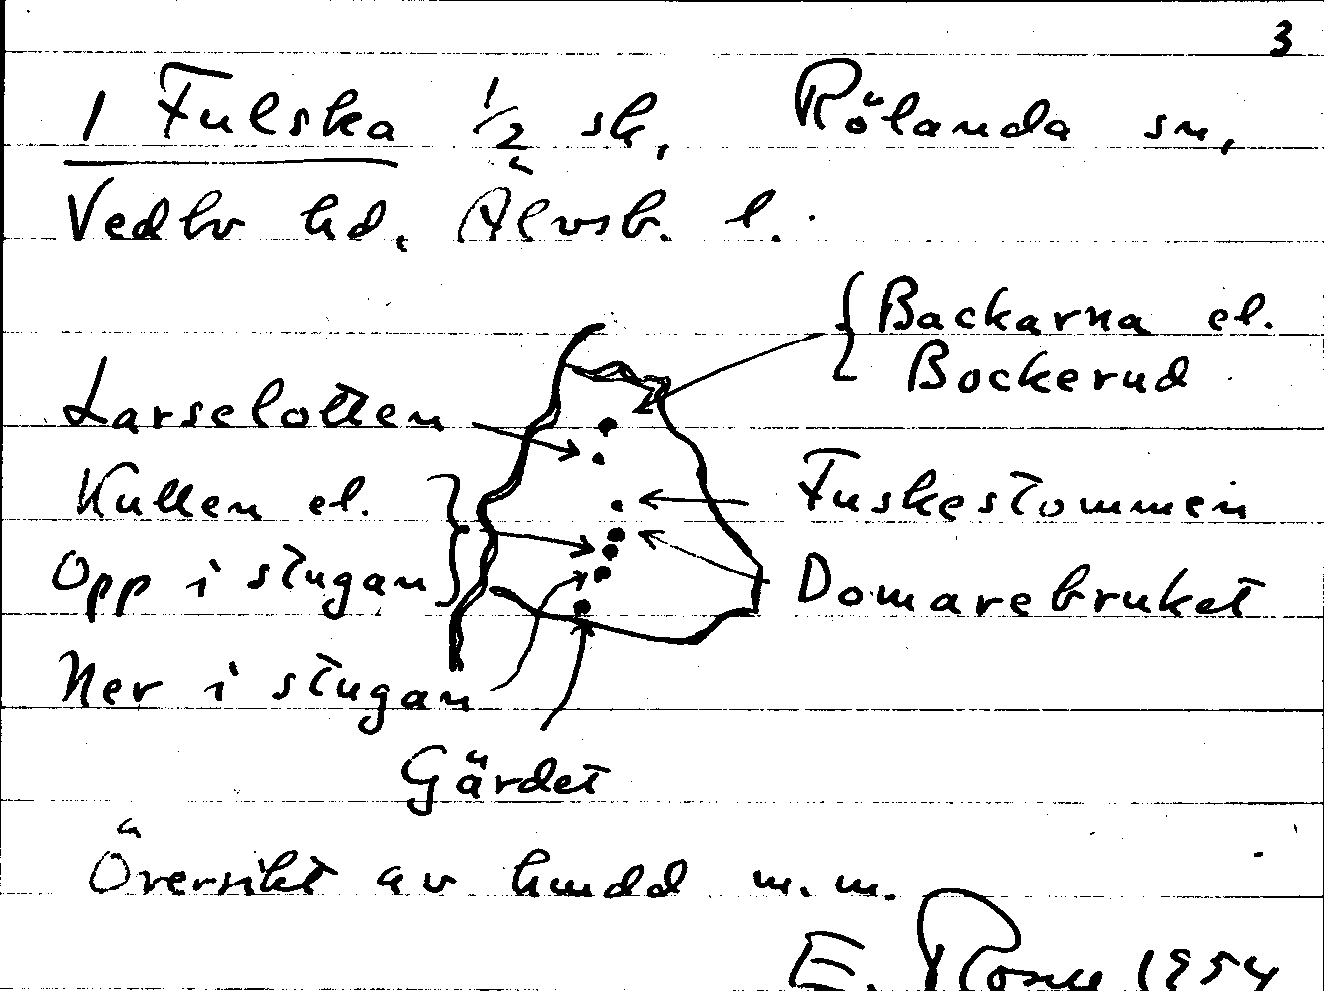 3
1 Fulska 1/2 sk, Rölanda sn,
Vedbo hd, Älvsb. l.
Backarna el.
Bockerud
Larselotten
Kullen el.
Fuskestommen
Opp i stugan
Domarebruket
Ner i stugan
Gärdet
Översikt av hmdd m.m.
E. 1954